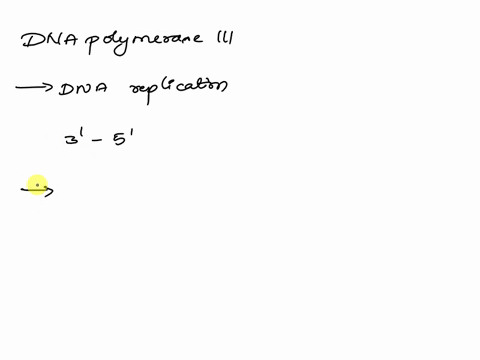 DNA polymerase III
→ DNA replication
3' - 5'
→